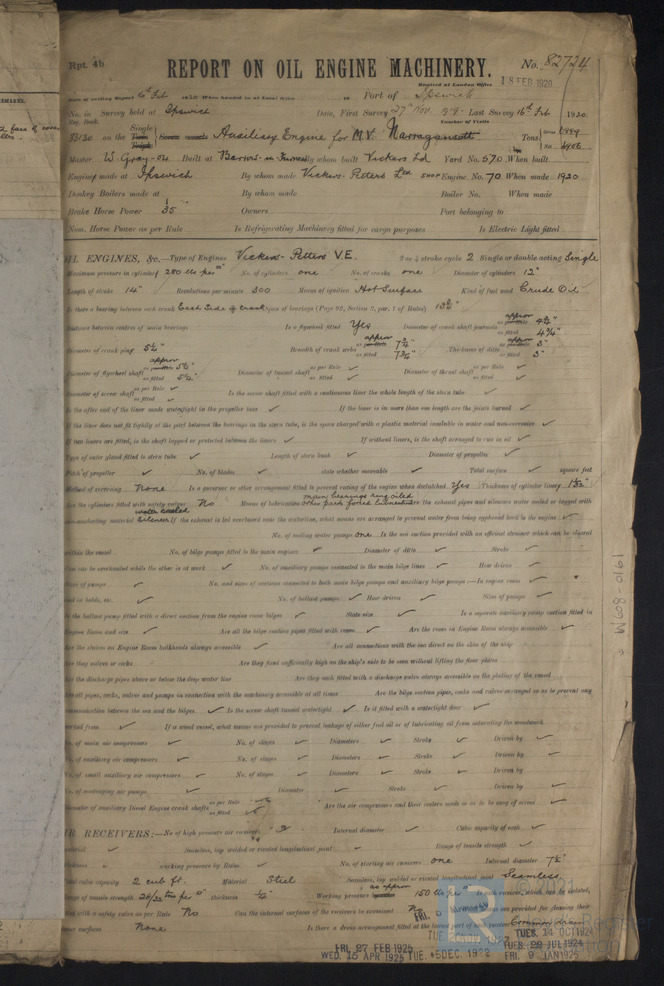 Rpt. 4b
REPORT ON OIL ENGINE MACHINERY.
No. 82724
Received at London Office 18 FEB 1920
Date of writing Report 6th Feb 1920 When handed in at Local Office 19 Port of Ipswich
No. in Survey held at Ipswich Date, First Survey 27th Nov 1919 Last Survey 16th Feb 1920
Reg. Book. Number of Visits
on the Single Auxiliary Engine for M.V. Narragansett Tons
Master Built at Barrow-in-Furness By whom built Vickers Ltd Yard No. 570 When built
Engines made at Ipswich By whom made Vickers-Petters Ltd Engine No. 70 When made 1920
Donkey Boilers made at By whom made Boiler No. When made
Brake Horse Power 35 Owners Port belonging to
Nom. Horse Power as per Rule Is Refrigerating Machinery fitted for cargo purposes Is Electric Light fitted
OIL ENGINES, &c.—Type of Engines Vickers-Petters V.E. 2 or 4 stroke cycle 2 Single or double acting Single
Maximum pressure in cylinders 280 lbs per No. of cylinders one No. of cranks one Diameter of cylinders 12"
Length of stroke 14" Revolutions per minute 300 Means of ignition Hot Surface Kind of fuel used Crude Oil
Is there a bearing between each crank Each Side of crank Span of bearings (Page 92, Section 2, par. 7 of Rules)
Distance between centres of main bearings Is a flywheel fitted Yes Diameter of crank shaft journals approx as fitted 4¾"
Diameter of crank pins 5½" Breadth of crank webs approx as fitted Thickness of ditto approx 3" as fitted 3"
Diameter of flywheel shaft approx 5½" as fitted Diameter of tunnel shaft as per Rule as fitted Diameter of thrust shaft as per Rule as fitted
Diameter of screw shaft as per Rule as fitted Is the screw shaft fitted with a continuous liner the whole length of the stern tube
Is the after end of the liner made watertight in the propeller boss If the liner is in more than one length are the joints burned
If the liner does not fit tightly at the part between the bearings in the stern tube, is the space charged with a plastic material insoluble in water and non-corrosive
If two liners are fitted, is the shaft lapped or protected between the liners If without liners, is the shaft arranged to run in oil
Type of outer gland fitted to stern tube Length of stern bush Diameter of propeller
Pitch of propeller No. of blades state whether moveable Total surface square feet
Method of reversing None Is a governor or other arrangement fitted to prevent racing of the engine when declutched Yes Thickness of cylinder liners
Are the cylinders fitted with safety valves No Means of lubrication main bearings ring oiled other parts forced lubrication Are the exhaust pipes and silencers water cooled or lagged with
non-conducting material water cooled Silencer If the exhaust is led overboard near the waterline, what means are arranged to prevent water from being syphoned back to the engine
No. of cooling water pumps one Is the sea suction provided with an efficient strainer which can be cleared
within the vessel No. of bilge pumps fitted to the main engines Diameter of ditto Stroke
Can one be overhauled while the other is at work No. of auxiliary pumps connected to the main bilge lines How driven
Sizes of pumps No. and sizes of suctions connected to both main bilge pumps and auxiliary bilge pumps:—In engine room
and in holds, etc. No. of ballast pumps How driven Sizes of pumps
Is the ballast pump fitted with a direct suction from the engine room bilges State size Is a separate auxiliary pump suction fitted in
Engine Room and size Are all the bilge suction pipes fitted with roses Are the roses in Engine Room always accessible
Are the sluices on Engine Room bulkheads always accessible Are all connections with the sea direct on the skin of the ship
Are they valves or cocks Are they fixed sufficiently high on the ship's side to be seen without lifting the floor plates
Are the discharge pipes above or below the deep water line Are they each fitted with a discharge valve always accessible on the plating of the vessel
Are all pipes, cocks, valves and pumps in connection with the machinery accessible at all times Are the bilge suction pipes, cocks and valves arranged so as to prevent any
communication between the sea and the bilges Is the screw shaft tunnel watertight Is it fitted with a watertight door
worked from If a wood vessel, what means are provided to prevent leakage of either fuel oil or of lubricating oil from saturating the woodwork
No. of main air compressors No. of stages Diameters Stroke Driven by
No. of auxiliary air compressors No. of stages Diameters Stroke Driven by
No. of small auxiliary air compressors No. of stages Diameters Stroke Driven by
No. of scavenging air pumps Diameter Stroke Driven by
Diameter of auxiliary Diesel Engine crank shafts as per Rule as fitted Are the air compressors and their coolers made so as to be easy of access
AIR RECEIVERS:—No. of high pressure air receivers Internal diameter Cubic capacity of each
material Seamless, lap welded or riveted longitudinal joint Range of tensile strength
thickness working pressure by Rules No. of starting air receivers one Internal diameter
Total cubic capacity 2 cub ft. Material Steel Seamless, lap welded or riveted longitudinal joint Seamless
Range of tensile strength thickness ¼" Working pressure as approx 150 lbs per Is each receiver, which can be isolated,
fitted with a safety valve as per Rule No Can the internal surfaces of the receivers be examined No
inner surfaces None Is there a drain arrangement fitted at the lowest part of each receiver
FRI. 27 FEB 1925
WED. 15 APR 1925
TUE. 5 DEC. 1922
TUES. 14 OCT 1924
TUES. 29 JUL 1924
FRI. 9 JAN 1925